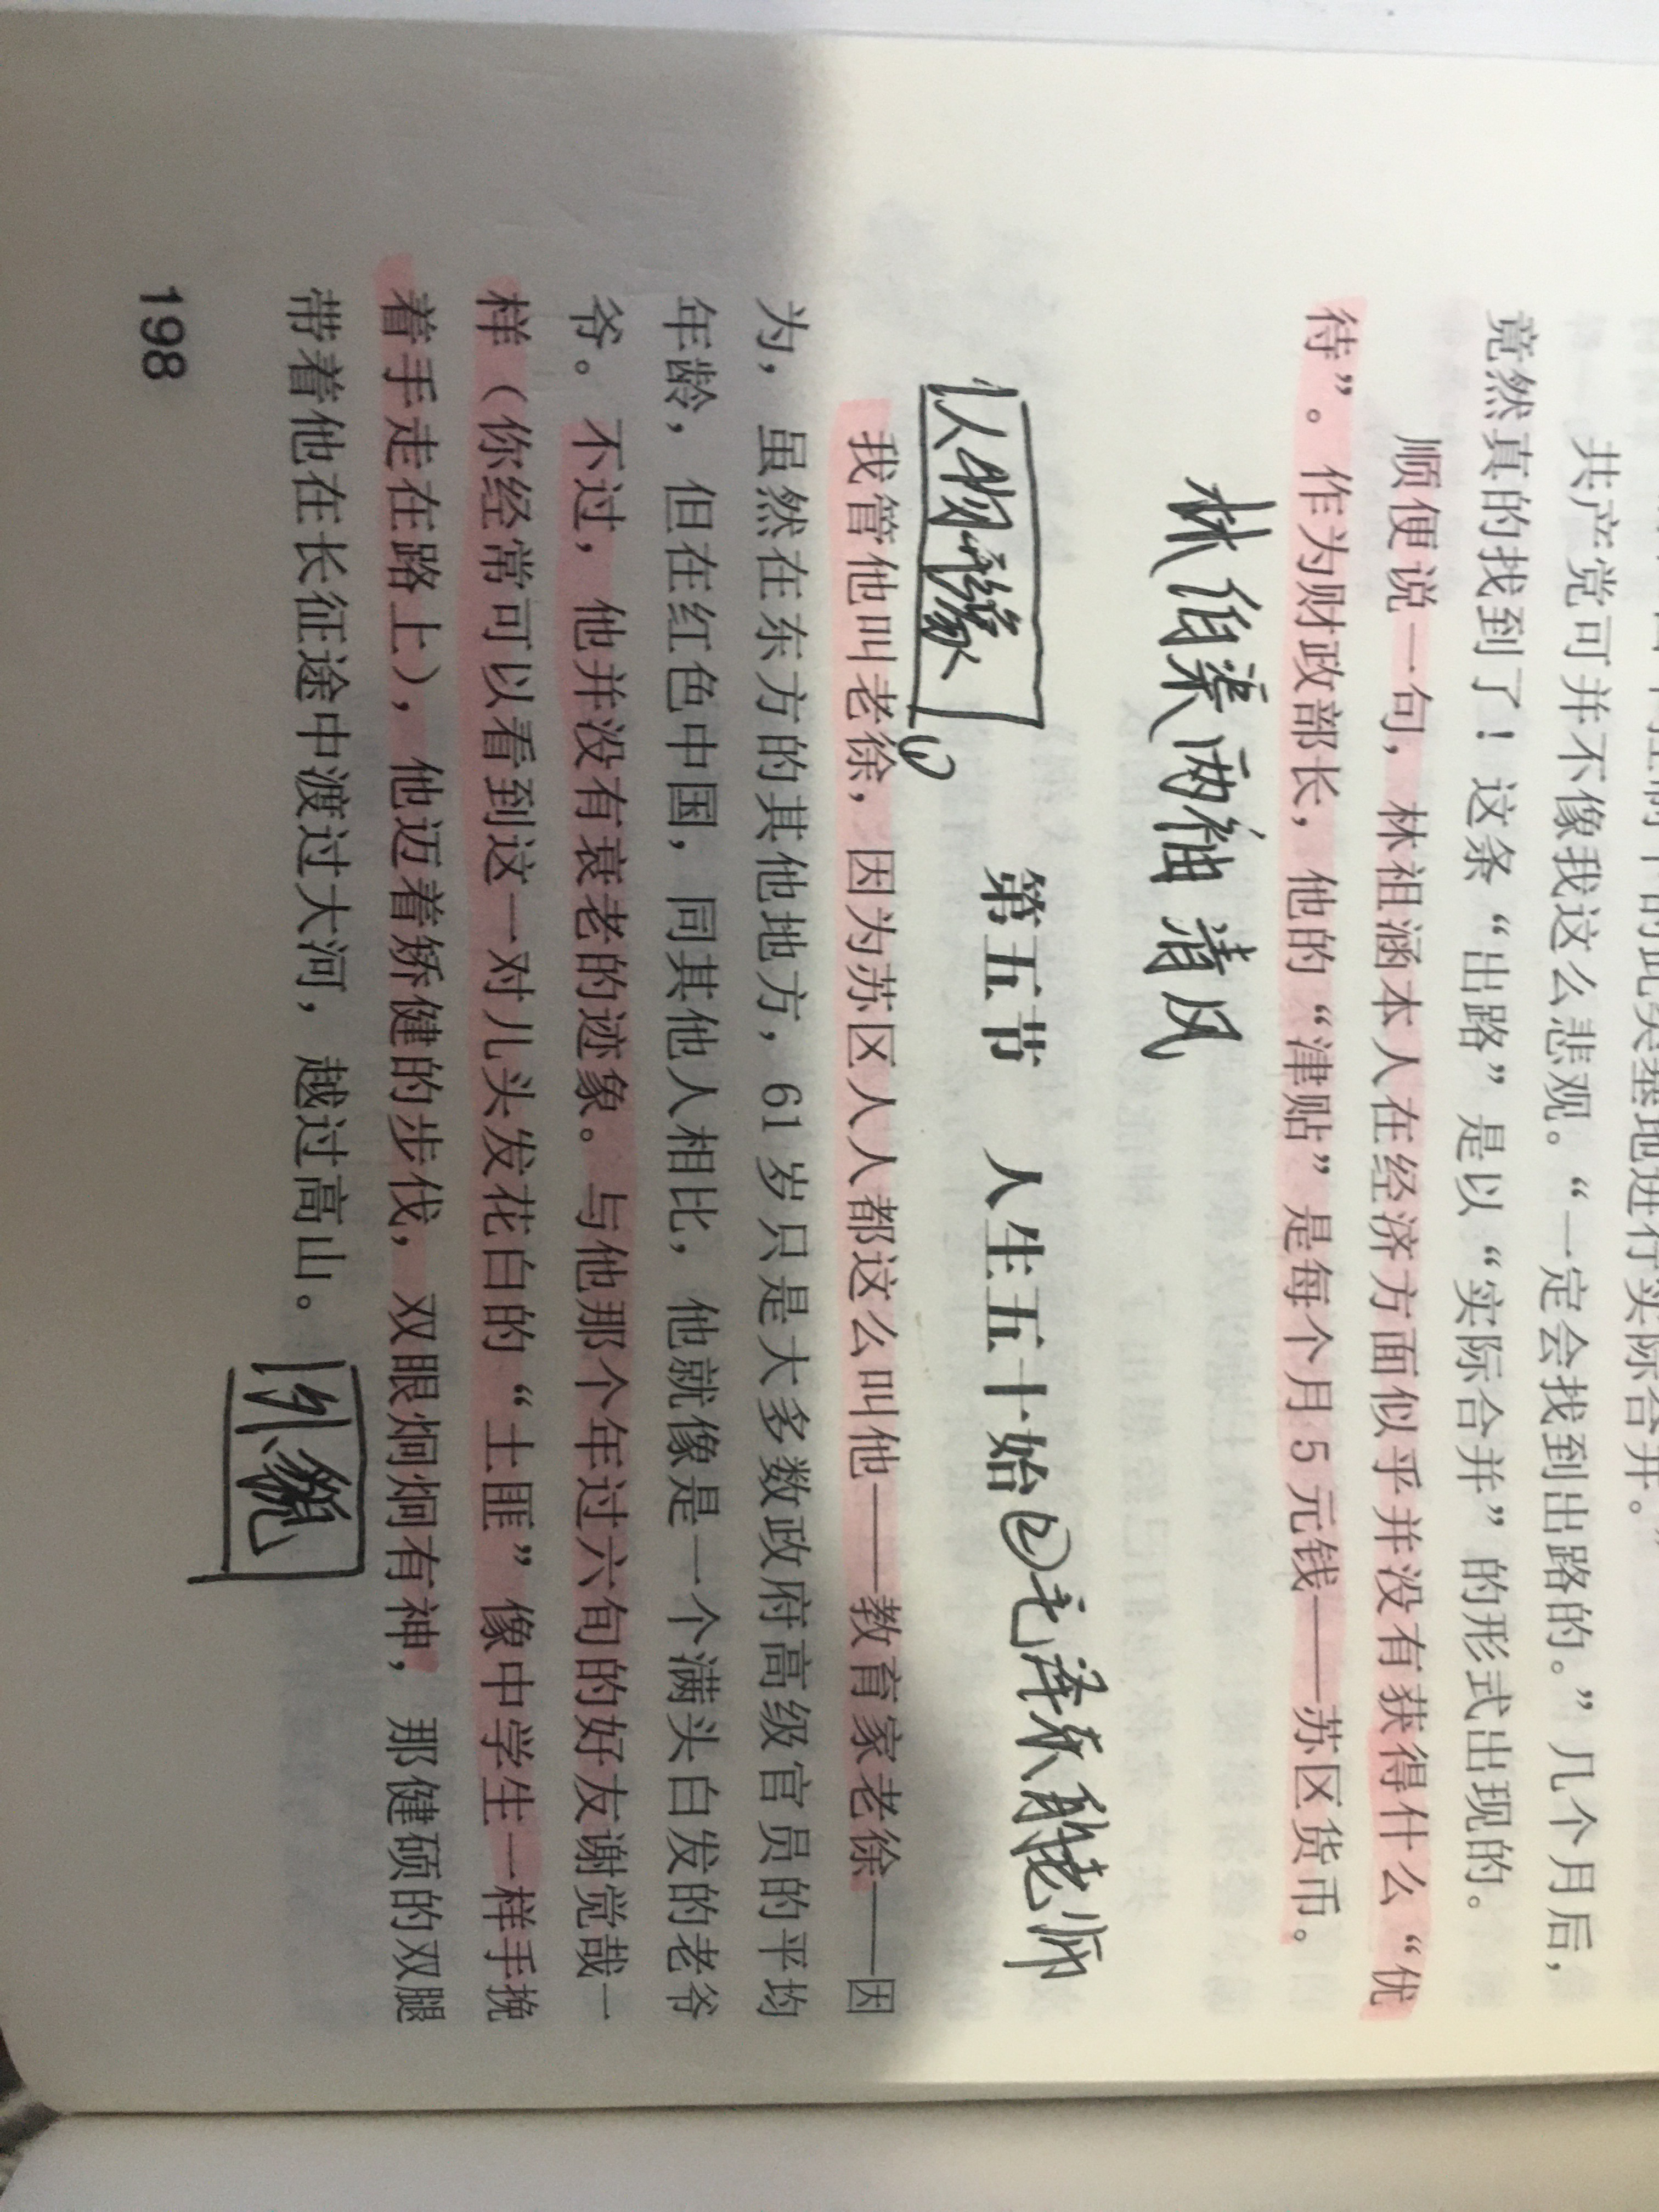 地进行实际合并。”
共产党可并不像我这么悲观。“一定会找到出路的。”几个月后，
竟然真的找到了！这条“出路”是以“实际合并”的形式出现的。
顺便说一句，林祖涵本人在经济方面似乎并没有获得什么“优
待”。作为财政部长，他的“津贴”是每个月5元钱——苏区货币。
林伯渠两袖清风
人物形象
第五节 人生五十始
②毛泽东的老师
①
我管他叫老徐，因为苏区人人都这么叫他——教育家老徐——因
为，虽然在东方的其他地方，61岁只是大多数政府高级官员的平均
年龄，但在红色中国，同其他人相比，他就像是一个满头白发的老爷
爷。不过，他并没有衰老的迹象。与他那个年过六旬的好友谢觉哉一
样（你经常可以看到这一对儿头发花白的“土匪”像中学生一样手挽
着手走在路上），他迈着矫健的步伐，双眼炯炯有神，那健硕的双腿
带着他在长征途中渡过大河，越过高山。
外貌
198